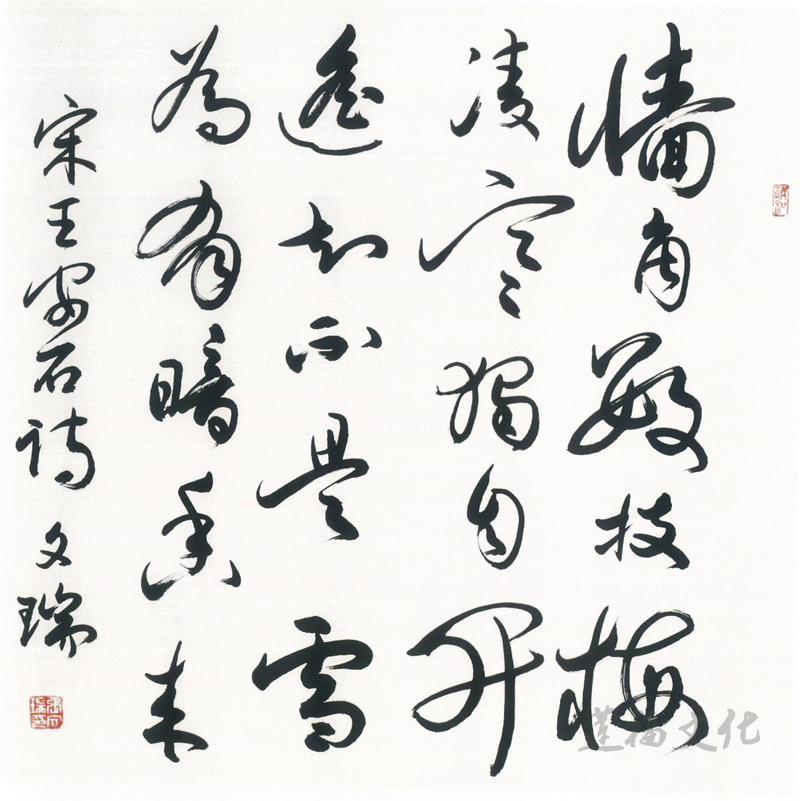 墙角數枝梅
凌寒獨自开
遙知不是雪
為有暗香来
宋王安石诗 文瑞